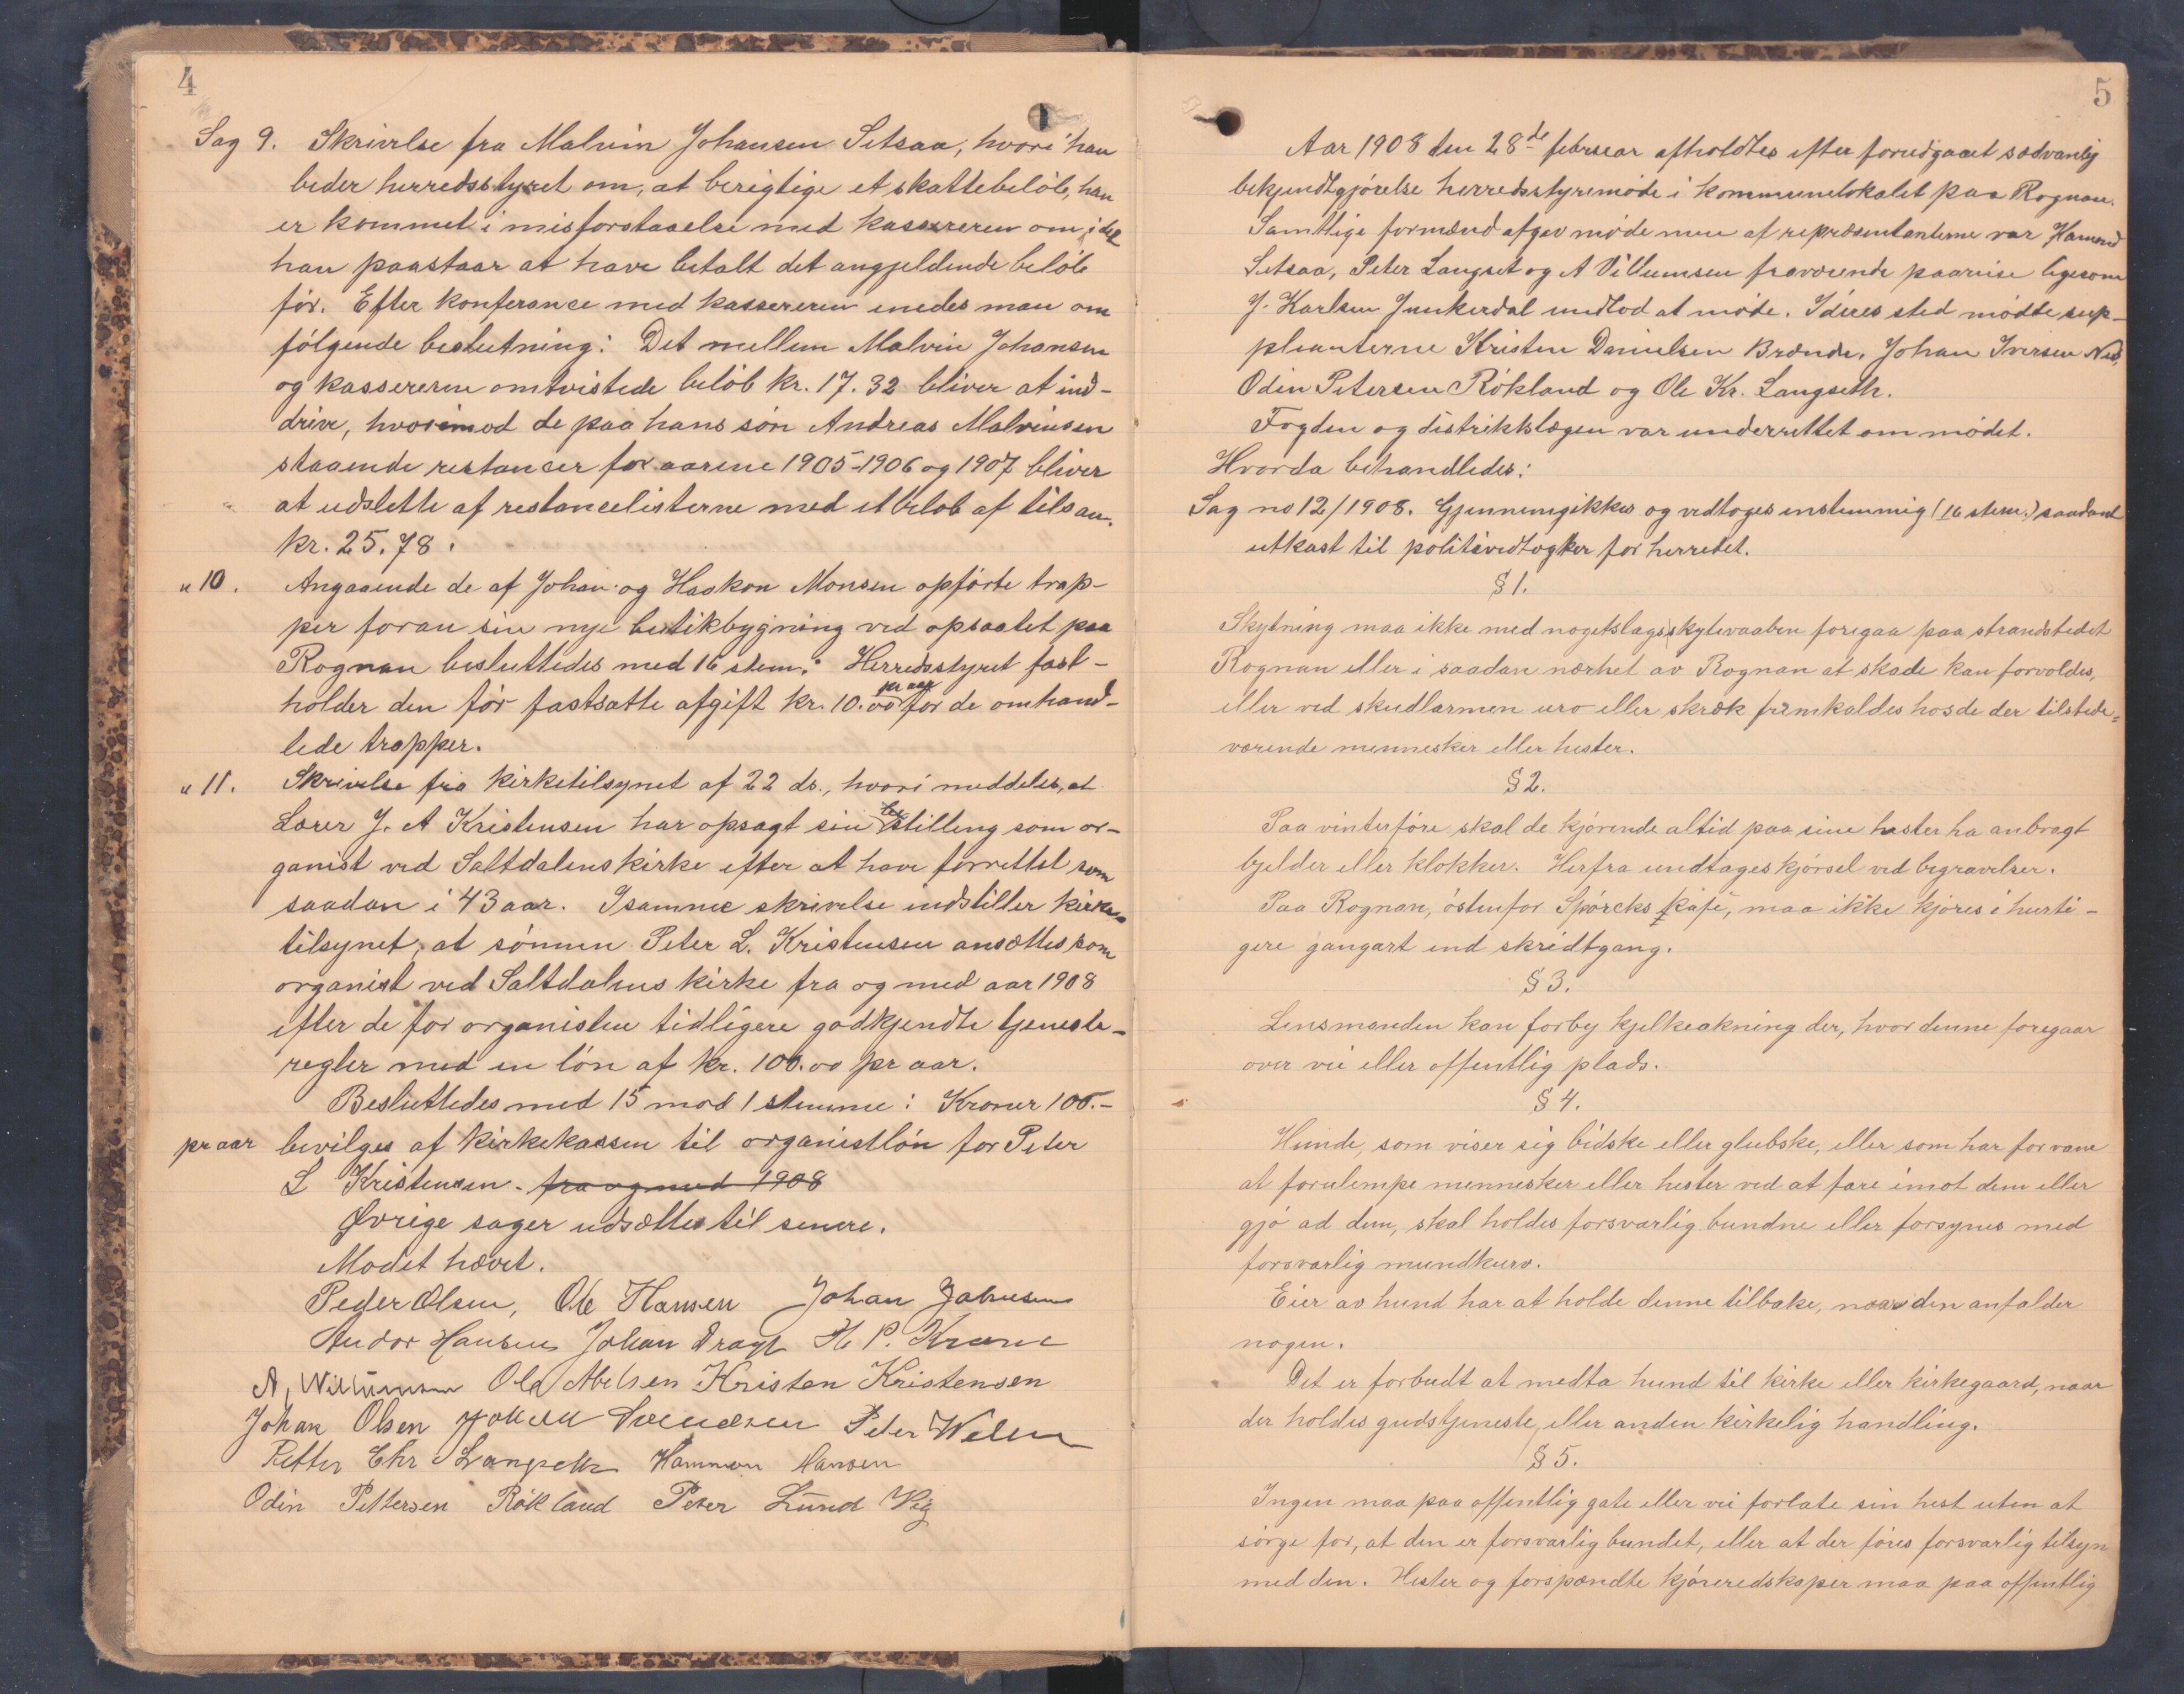 4
Sag 9. Skrivelse fra Malvin Johansen Setsaa, hvori han
beder herredsstyret om, at berigtige et skattebeløb, han
er kommet i misforstaaelse med kassereren om, idet
han paastaar at have betalt det angjeldende beløb
før. Efter konferance med kassereren enedes man om
følgende beslutning: Det mellem Malvin Johansen
og kassereren omtvistede beløb kr. 17.32 bliver at ind-
drive, hvorimod de paa hans søn Andreas Malvinsen
staaende restancer for aarene 1905-1906 og 1907 bliver
at udslette af restancelisterne med et beløb af tilsam.
kr. 25.78.
" 10. Angaaende de af Johan og Haakon Monsen opførte trap-
per foran sin nye butikbygning ved opsaatet paa
Rognan besluttedes med 16 stem: Herredsstyret fast-
holder den før fastsatte afgift kr. 10.00 pr aar for de omhand-
lede trapper.
" 11. Skrivelse fra kirketilsynet af 22 ds., hvori meddeles, at
Lærer J. A Kristensen har opsagt sin stilling som or-
ganist ved Saltdalens kirke efter at have forrettet som
saadan i 43 aar. I samme skrivelse indstiller kirke-
tilsynet, at sønnen Peter L. Kristensen ansættes som
organist ved Saltdalens kirke fra og med aar 1908
efter de for organisten tidligere godkjendte tjeneste-
regler med en løn af kr. 100.00 pr aar.
Besluttedes med 15 mod 1 stemme: Kroner 100.-
pr aar bevilges af kirkekassen til organistløn for Peter
L Kristensen. fra og med 1908
Øvrige sager udsættes til senere.
Mødet hævet.
Peder Olsen, Ole Hansen Johan Jakusen
Andor Hansen Johan Drage H. P. Krane
A, Willumsen Ole Abelsen Kristen Kristensen
Johan Olsen Johan Svendsen Peter Welen
Petter Chr Langseth Hammon Hansen
Odin Pettersen Røkland Peter Lund Vig
5
Aar 1908 den 28de februar afholdtes efter forudgaaet sædvanlig
bekjendtgjørelse herredsstyremøde i kommunelokalet paa Rognan.
Samtlige formænd afgav møde men af repræsentanterne var Hamond
Setsaa, Peter Langset og A Villumsen fraværende paa reise ligesom
J. Karlsen Junkerdal undlod at møde. I deres sted mødte sup-
pleanterne Kristen Danielsen Brænde, Johan Iversen Nes,
Odin Petersen Røkland og Ole Kr. Langseth.
Fogden og distriktslægen var underrettet om mødet.
Hvorda behandledes:
Sag no 12/1908. Gjennemgikkes og vedtoges enstemmig (16 stem.) saadant
utkast til politivedtægter for herredet.
§ 1.
Skytning maa ikke med nogetslags skytevaaben foregaa paa strandstedet
Rognan eller i saadan nærhet av Rognan at skade kan forvoldes,
eller ved skudlarmen uro eller skræk fremkaldes hos de der tilstede=
værende mennesker eller hester.
§ 2.
Paa vinterføre skal de kjørende altid paa sine hester ha anbragt
bjelder eller klokker. Herfra undtages kjørsel ved begravelser.
Paa Rognan, østenfor Spørcks kafe, maa ikke kjøres i hurti-
gere gangart end skridtgang.
§ 3.
Lensmanden kan forby kjelkeakning der, hvor denne foregaar
over vei eller offentlig plads.
§ 4.
Hunde, som viser sig bidske eller glubske, eller som har for vane
at forulempe mennesker eller hester ved at fare imot dem eller
gjø ad dem, skal holdes forsvarlig bundne eller forsynes med
forsvarlig mundkurv.
Eier av hund har at holde denne tilbake, naar den anfalder
nogen.
Det er forbudt at medta hund til kirke eller kirkegaard, naar
der holdes gudstjeneste, eller anden kirkelig handling.
§ 5.
Ingen maa paa offentlig gate eller vei forlate sin hest uten at
sørge for, at den er forsvarlig bundet, eller at der føres forsvarlig tilsyn
med den. Hester og forspændte kjøreredskaper maa paa offentlig